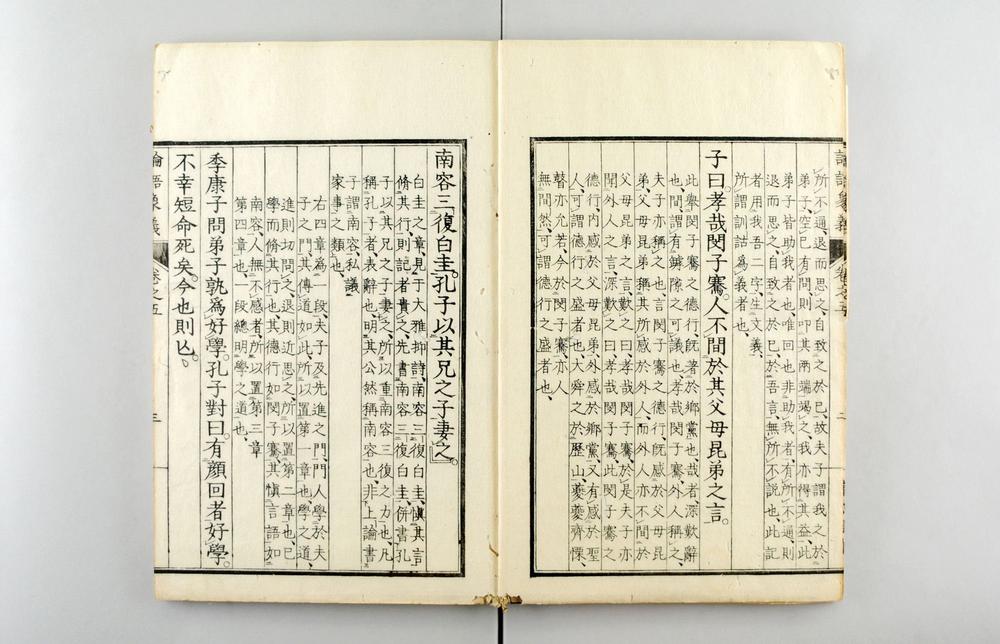 論語象義
所不通、退而思之、自致之於己、故夫子謂我之於
弟子、空已、有問則叩其兩端竭之、我亦得其益、此
弟子皆助我者也、唯回也非助我者、有所不通、則
退而思之、自致之於己、於吾言、無所不說也、此記
者用我吾二字、生文義、
所謂訓詁爲義者也、
子曰。孝哉閔子騫。人不間於其父母昆弟之言。
此擧閔子騫之德行旣著於鄉黨也、哉者、深歎辭
也、間謂有罅隙之可議也、孝哉閔子騫、外人稱之、
夫子亦稱之也、言閔子騫之德行、旣感於父母昆
弟、父母昆弟稱其所感於外人、而外人亦不間於
父母昆弟之言、歎之曰孝哉閔子騫、於是夫子亦
聞外人之言、深歎之曰孝哉閔子騫、此閔子騫之
德行、內感於父母昆弟、外感於鄉黨、又有感於聖
人、可謂德行之盛者也、大舜之於歷山、夔夔齊慄、
瞽亦允若、今於閔子騫、亦人
無間然、可謂德行之盛者也、
南容三復白圭。孔子以其兄之子妻之。
白圭之章、見于大雅抑詩、南容三復白圭、愼其言
脩其行、則記者貴之、先書南容三復白圭、併書孔
子以其兄之子妻之、所以重南容三復之力也、凡
稱孔子者、表辭也、明其公然稱南容也、非上論書
子謂南容、私議
家事之類也、
右四章爲一段、夫子及先進之門、門人學於夫
子之門、其傳道如此、所以置第一章也、學之道、
進則切問之、退則近思之、所以置第二章也、已
學而脩其行也、其德行如閔子騫、其愼言語如
南容、人無不感者、所以置第三章
第四章也、一段總明學之道也、
季康子問。弟子孰爲好學。孔子對曰。有顏回者好學。
不幸短命死矣。今也則亡。
論語象義
卷之五
三